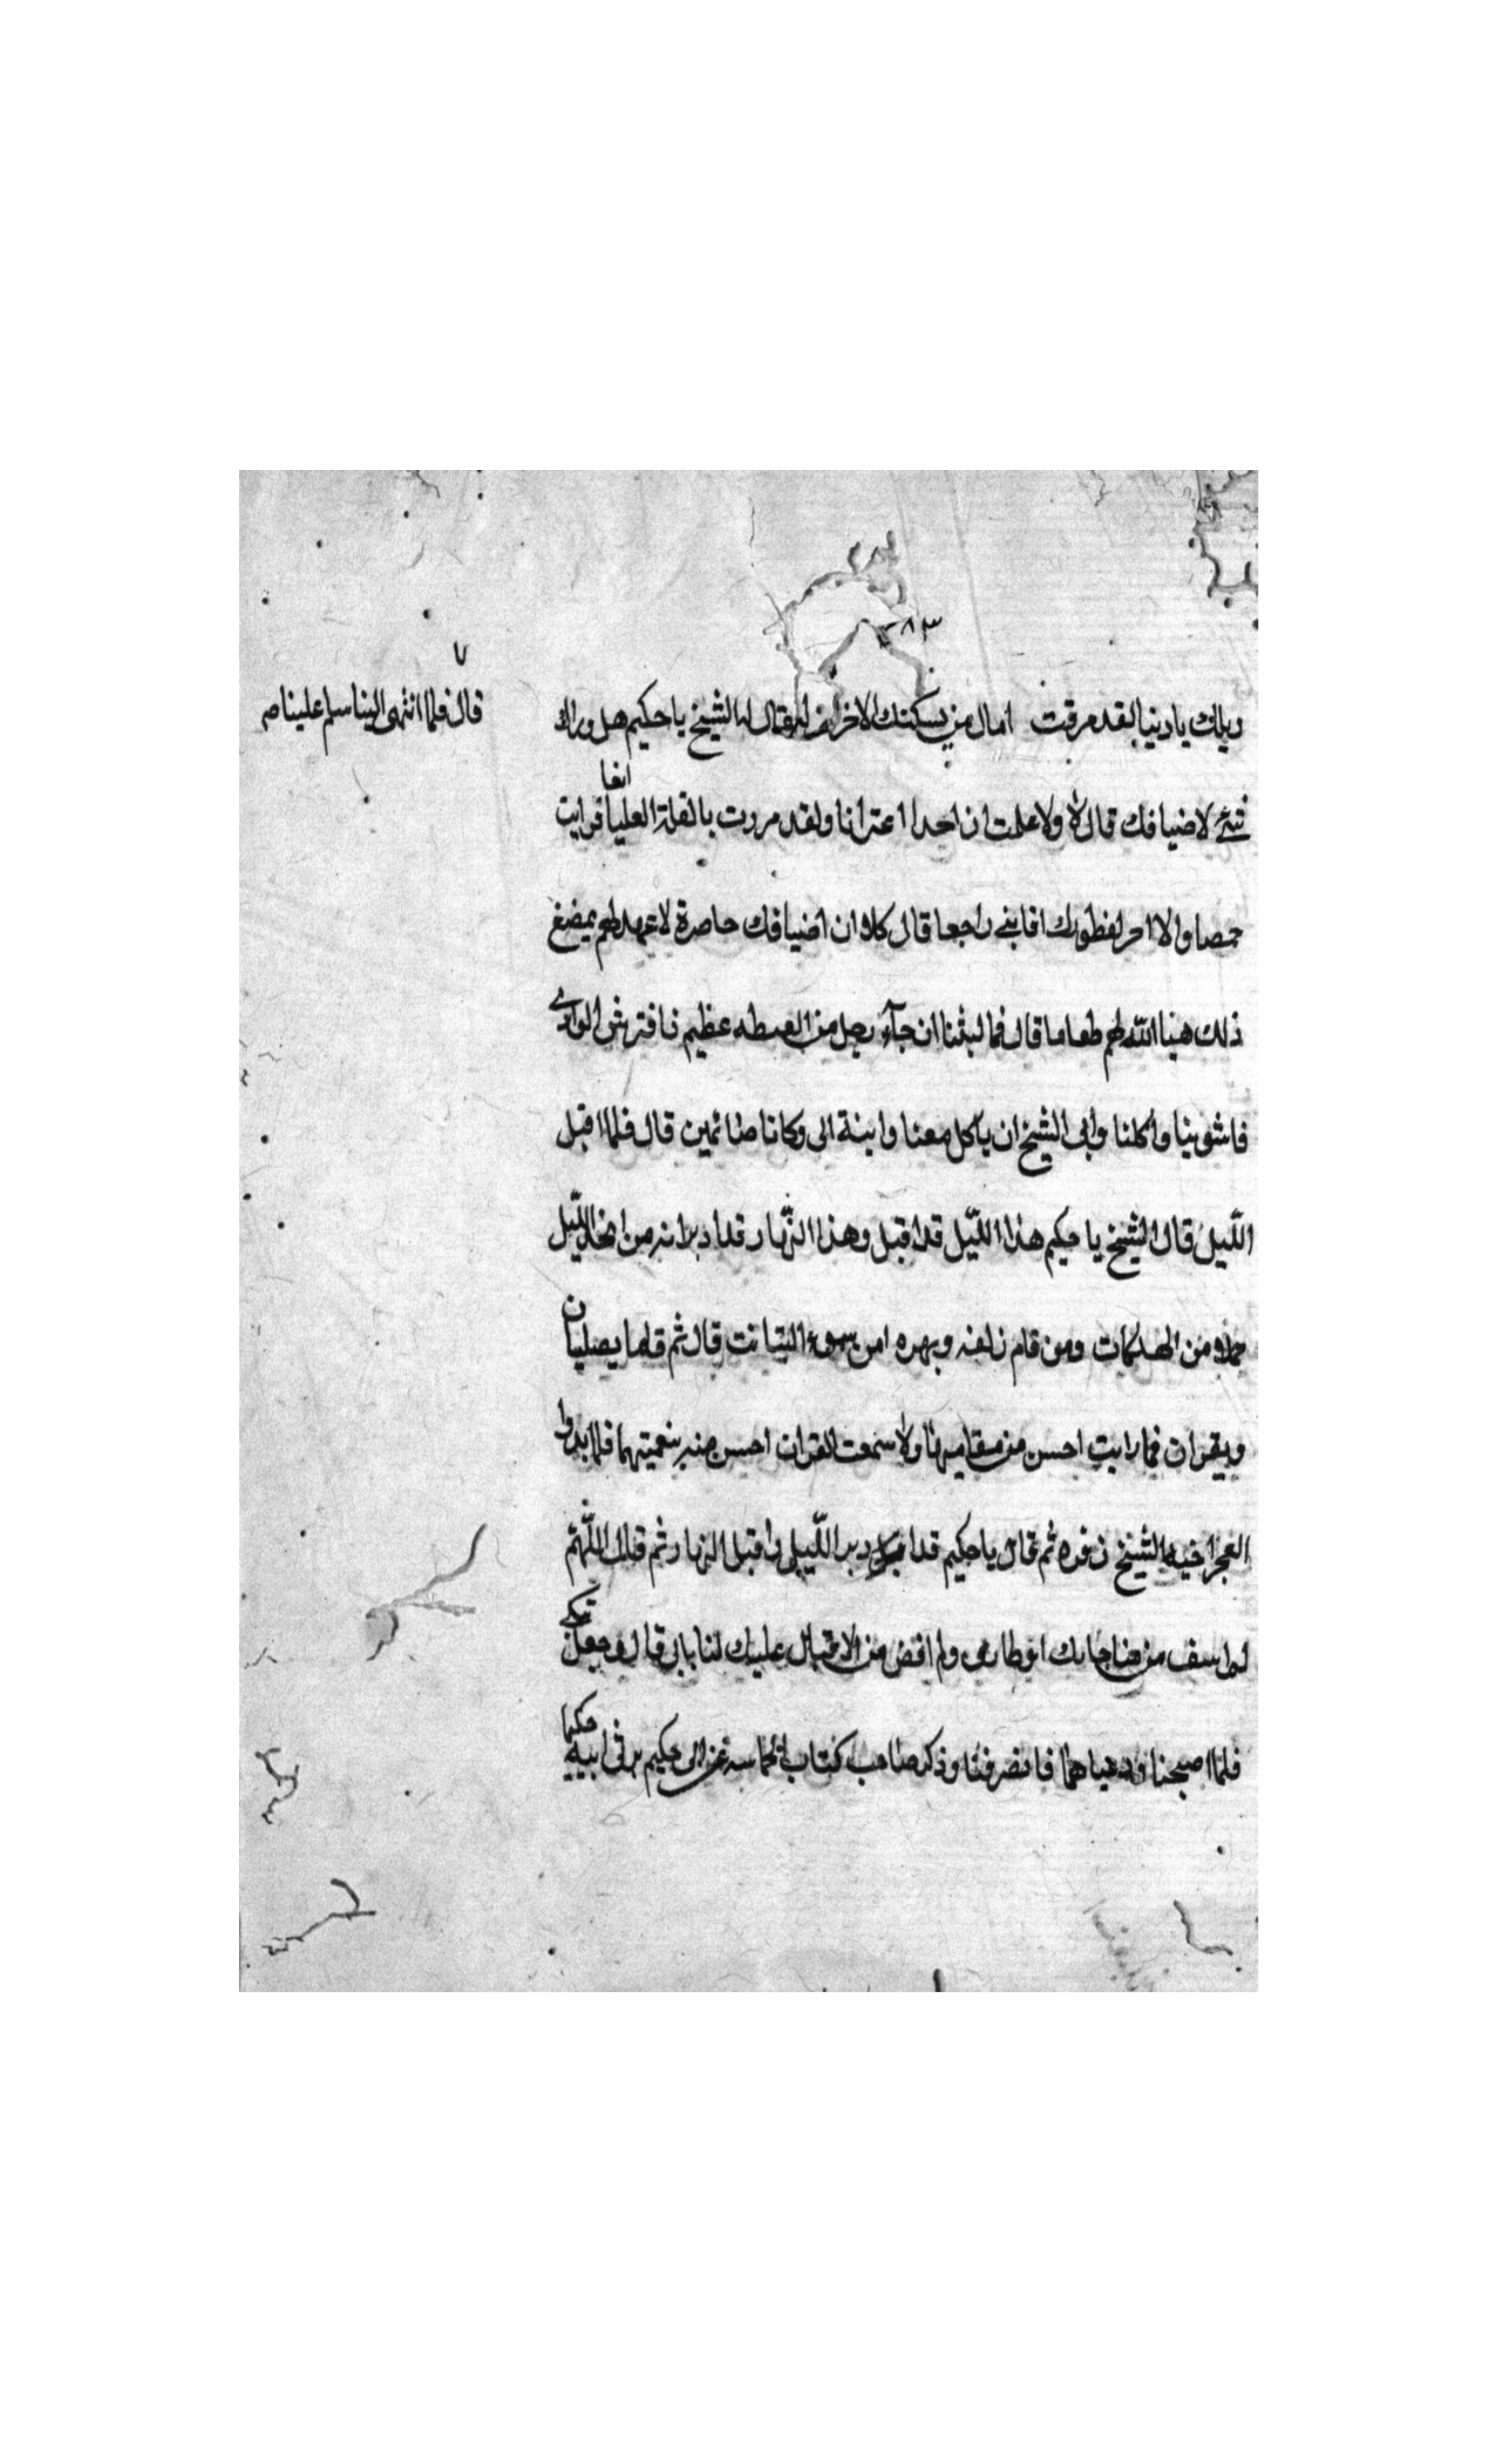 ٢٨٣
ويلك يا دنيا لقد مرقت امال من يسكنك الاخران له فقال له الشيخ يا حكيم هل وراك
قال فلما انتهى الينا سلم علينا صح
شئ لاضيافك قال لا ولا علمت ان احدا اعترانا ولقد مررت بالقلة العليا انفا فرايت
حمصا والا احر لفطورك افابغى راجعا قال كلا وان اضيافك حاصرة لا عهد لهم بمضغ
ذلك هينا الله لهم طعاما قال فما لبثنا ان جآء رجل من القبطه عظيم فافترش الوادي
فاشوينا واكلنا وابى الشيخ ان ياكل معنا وابنة الى وكانا صائمين قال فلما اقبل
اللّيل قال الشيخ يا حكيم هذا اللّيل قد اقبل وهذا النّهار قد ادبر انه من اتخذ اللّيل
حمله من الهلكات ومن قام زلفه وبهره امن سوء البتانت قال ثم قلما يصليان
ويقران فما رايت احسن من مقامهما ولا سمعت القران احسن منه بنغميتهما فلما بدا وا
الفجر اخيه الشيخ زفره ثم قال يا حكيم قد ادبر اللّيل واقبل النهار ثم قال اللّهمّ
لم اسف من مناجاتك اوطارى ولم اقض من الاقبال عليك لنا بابى قال وجعل يبكى
فلما اصبحنا ودعناهما فانصرفنا وذكر صاحب كتاب الحماسه عن ابى حكيم يرثى ابنيه حكيما